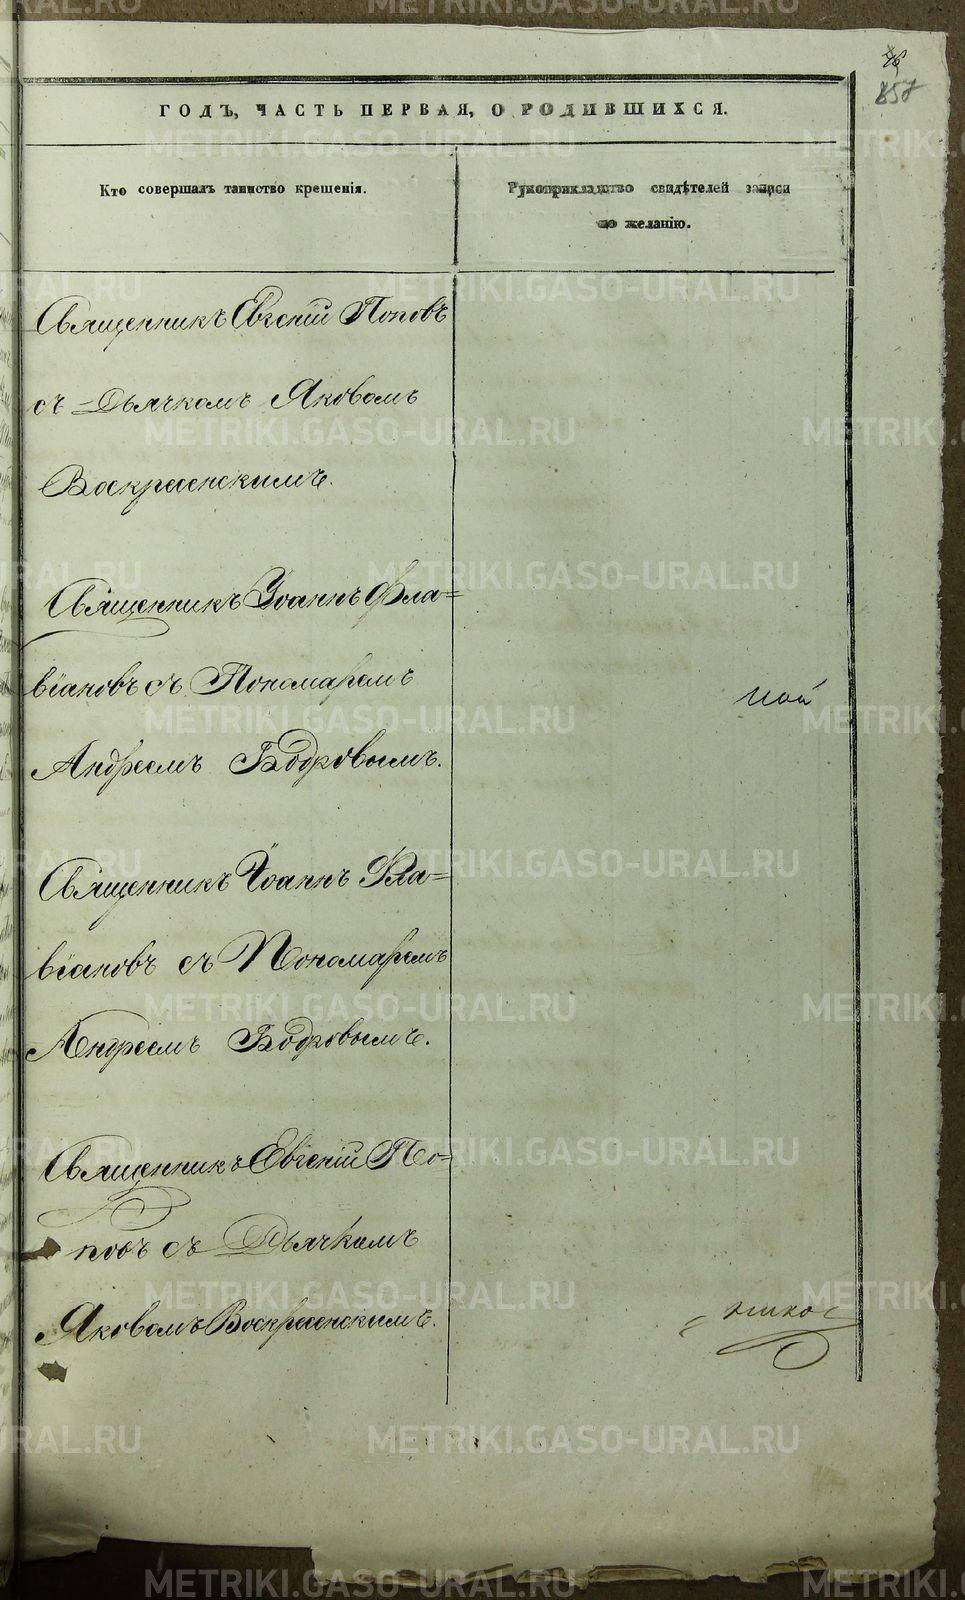 857
ГОДЪ, ЧАСТЬ ПЕРВАЯ, О РОДИВШИХСЯ.
Кто совершалъ таинство крещенія.
Рукоприкладство свидѣтелей записи
по желанію.
Священникъ Евгеній Поповъ
съ Дьячкомъ Яковомъ
Воскресенскимъ.
Священникъ Іоаннъ Фла=
віановъ съ Пономаремъ
Андреемъ Бодровымъ.
Священникъ Іоаннъ Фла=
віановъ съ Пономаремъ
Андреемъ Бодровымъ.
Священникъ Евгеній По-
повъ съ Дьячкомъ
Яковомъ Воскресенскимъ.
METRIKI.GASO-URAL.RU